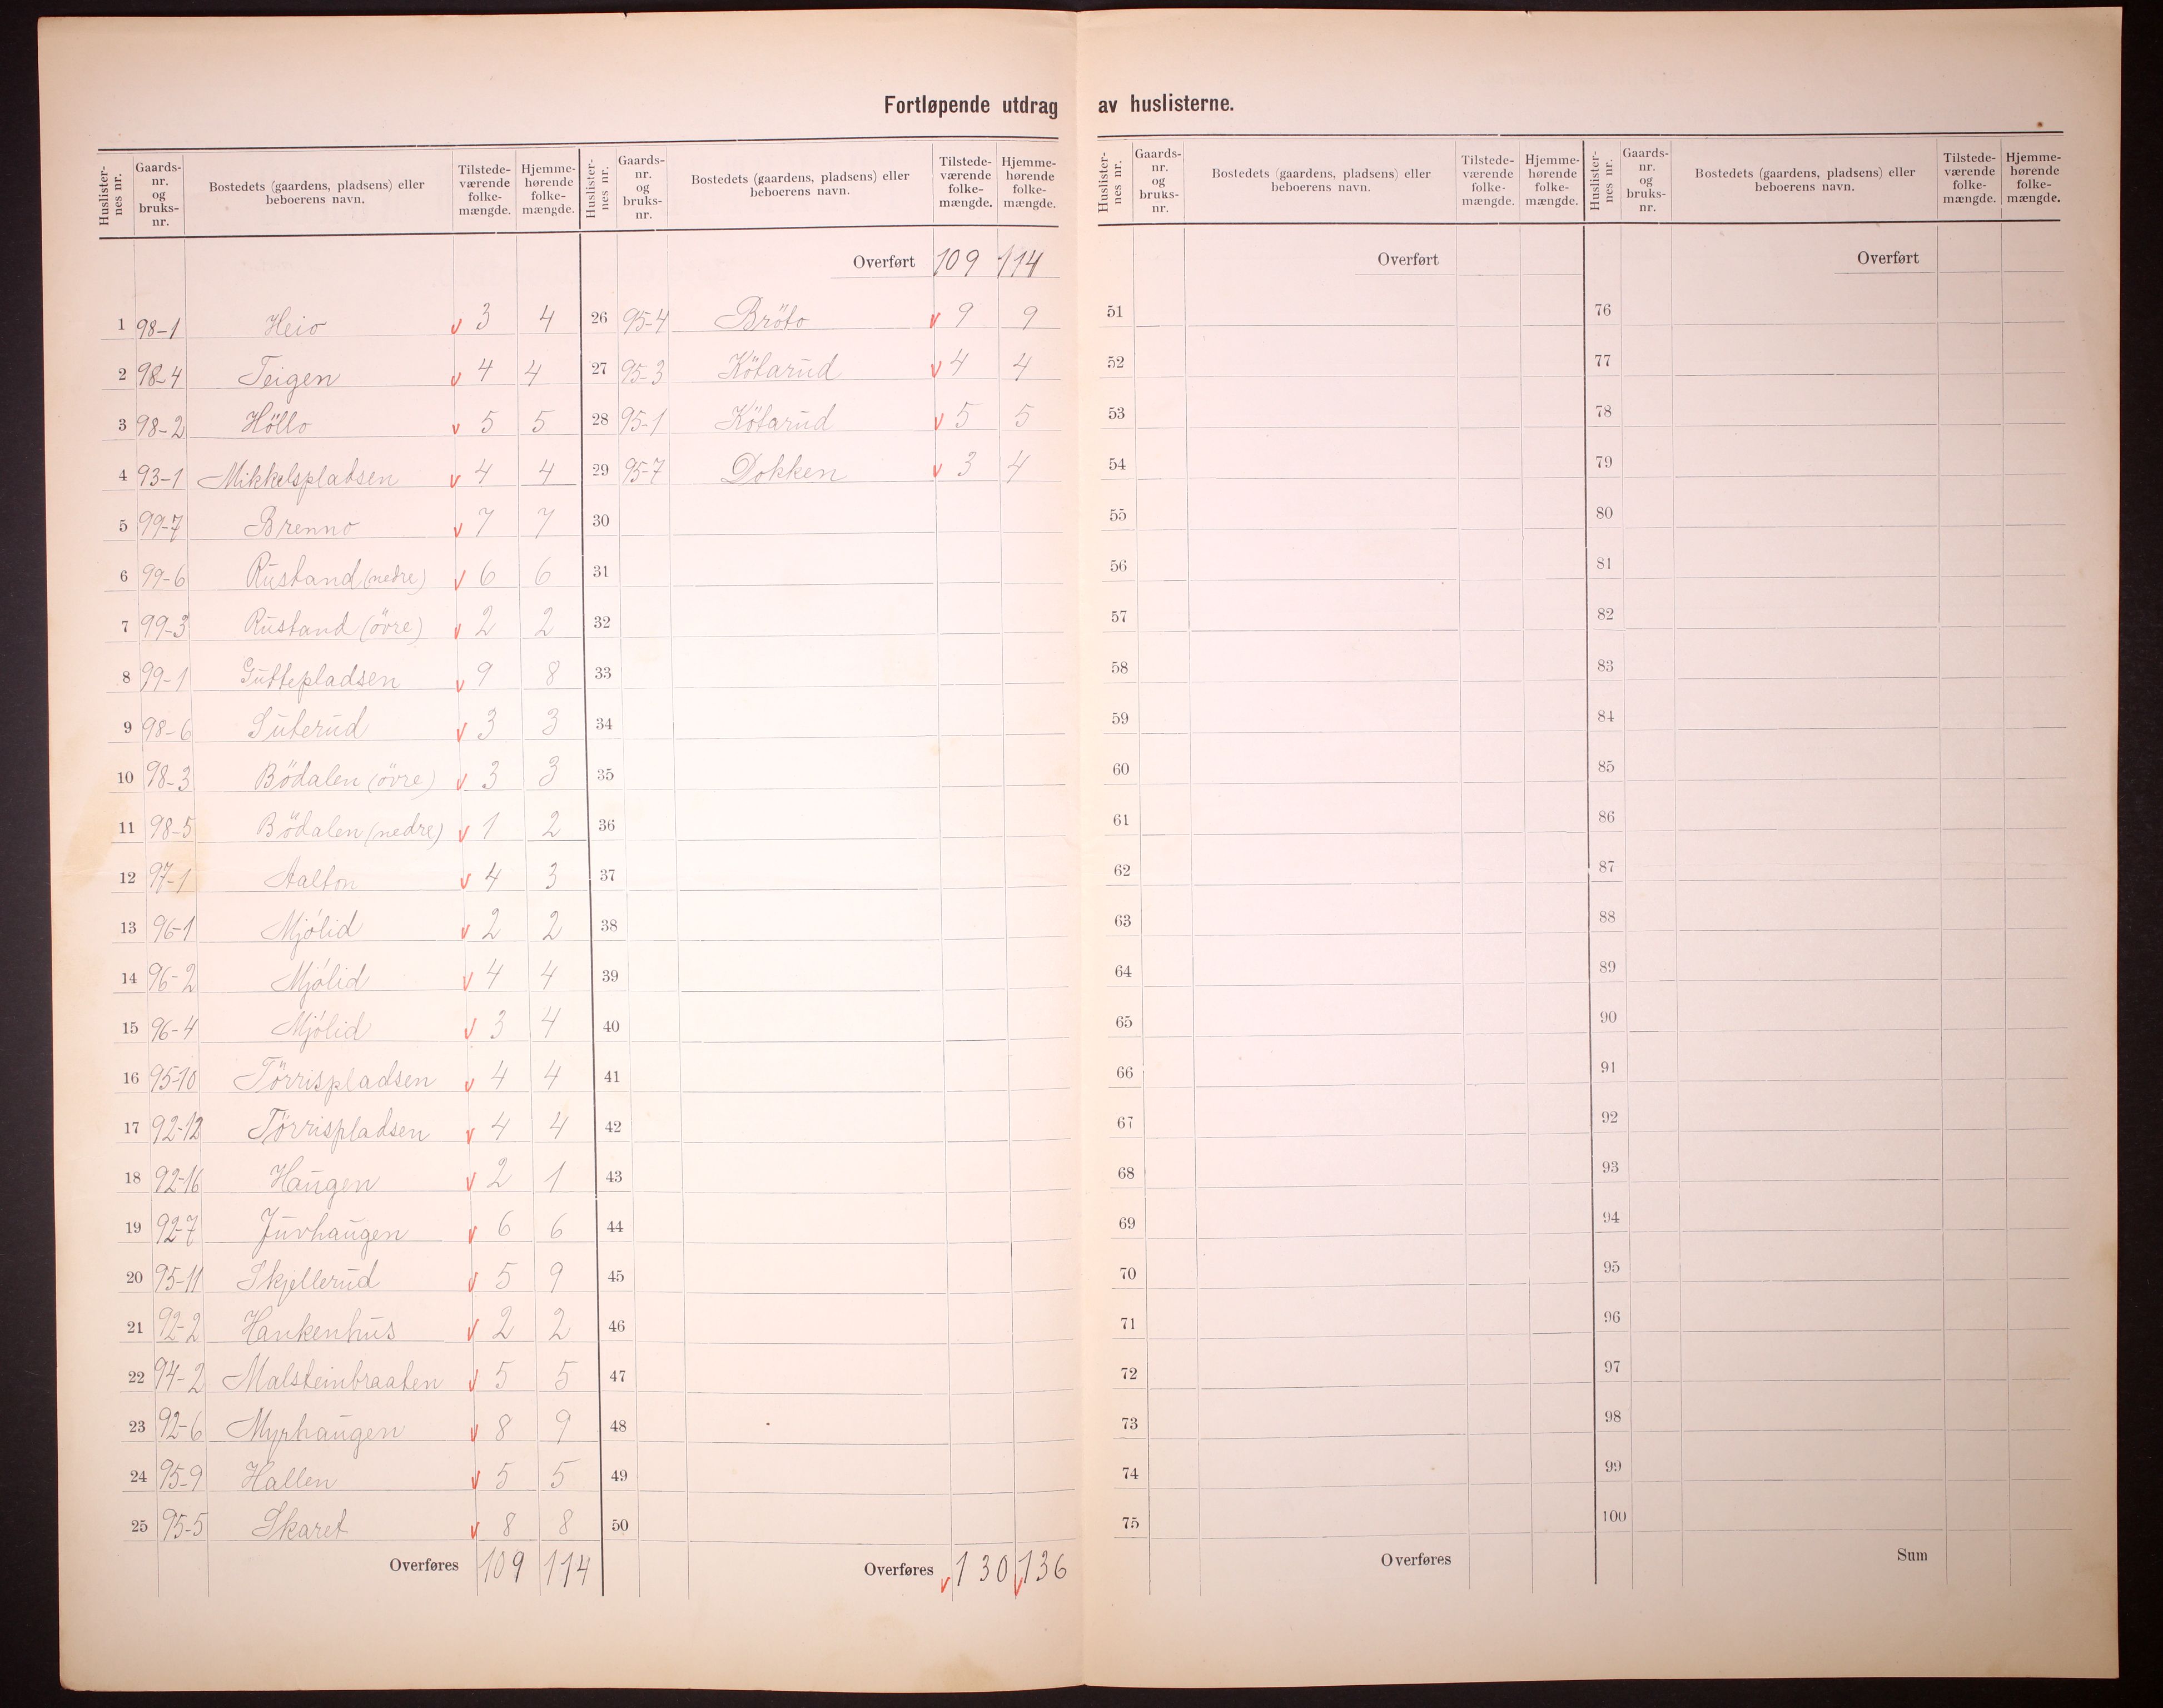 Fortløpende utdrag av huslisterne.
Huslister-nes nr. Gaards-nr. og bruks-nr. Bostedets (gaardens, pladsens) eller beboerens navn. Tilstede-værende folke-mængde. Hjemme-hørende folke-mængde.
1 98-1 Heio v 3 4
2 98-4 Teigen v 4 4
3 98-2 Höllo v 5 5
4 93-1 Mikkelspladsen v 4 4
5 99-7 Brenno v 7 7
6 99-6 Rustand (nedre) v 6 6
7 99-3 Rustand (övre) v 2 2
8 99-1 Guttepladsen v 9 8
9 98-6 Suterud v 3 3
10 98-3 Bödalen (övre) v 3 3
11 98-5 Bödalen (nedre) v 1 2
12 97-1 Aalton v 4 3
13 96-1 Mjölid v 2 2
14 96-2 Mjölid v 4 4
15 96-4 Mjölid v 3 4
16 95-10 Törrispladsen v 4 4
17 92-12 Törrispladsen v 4 4
18 92-16 Haugen v 2 1
19 92-7 Juvhaugen v 6 6
20 95-11 Skjellerud v 5 9
21 92-2 Hankenhus v 2 2
22 94-2 Malsteinbraaten v 5 5
23 92-6 Myrhaugen v 8 9
24 95-9 Hallen v 5 5
25 95-5 Skaret v 8 8
Overføres 109 114
Huslister-nes nr. Gaards-nr. og bruks-nr. Bostedets (gaardens, pladsens) eller beboerens navn. Tilstede-værende folke-mængde. Hjemme-hørende folke-mængde.
Overført 109 114
26 95-4 Bröto v 9 9
27 95-3 Kötarud v 4 4
28 95-1 Kötarud v 5 5
29 95-7 Dokken v 3 4
30
31
32
33
34
35
36
37
38
39
40
41
42
43
44
45
46
47
48
49
50
Overføres v 130 v 136
Huslister-nes nr. Gaards-nr. og bruks-nr. Bostedets (gaardens, pladsens) eller beboerens navn. Tilstede-værende folke-mængde. Hjemme-hørende folke-mængde.
Overført
51
52
53
54
55
56
57
58
59
60
61
62
63
64
65
66
67
68
69
70
71
72
73
74
75
Overføres
Huslister-nes nr. Gaards-nr. og bruks-nr. Bostedets (gaardens, pladsens) eller beboerens navn. Tilstede-værende folke-mængde. Hjemme-hørende folke-mængde.
Overført
76
77
78
79
80
81
82
83
84
85
86
87
88
89
90
91
92
93
94
95
96
97
98
99
100
Sum